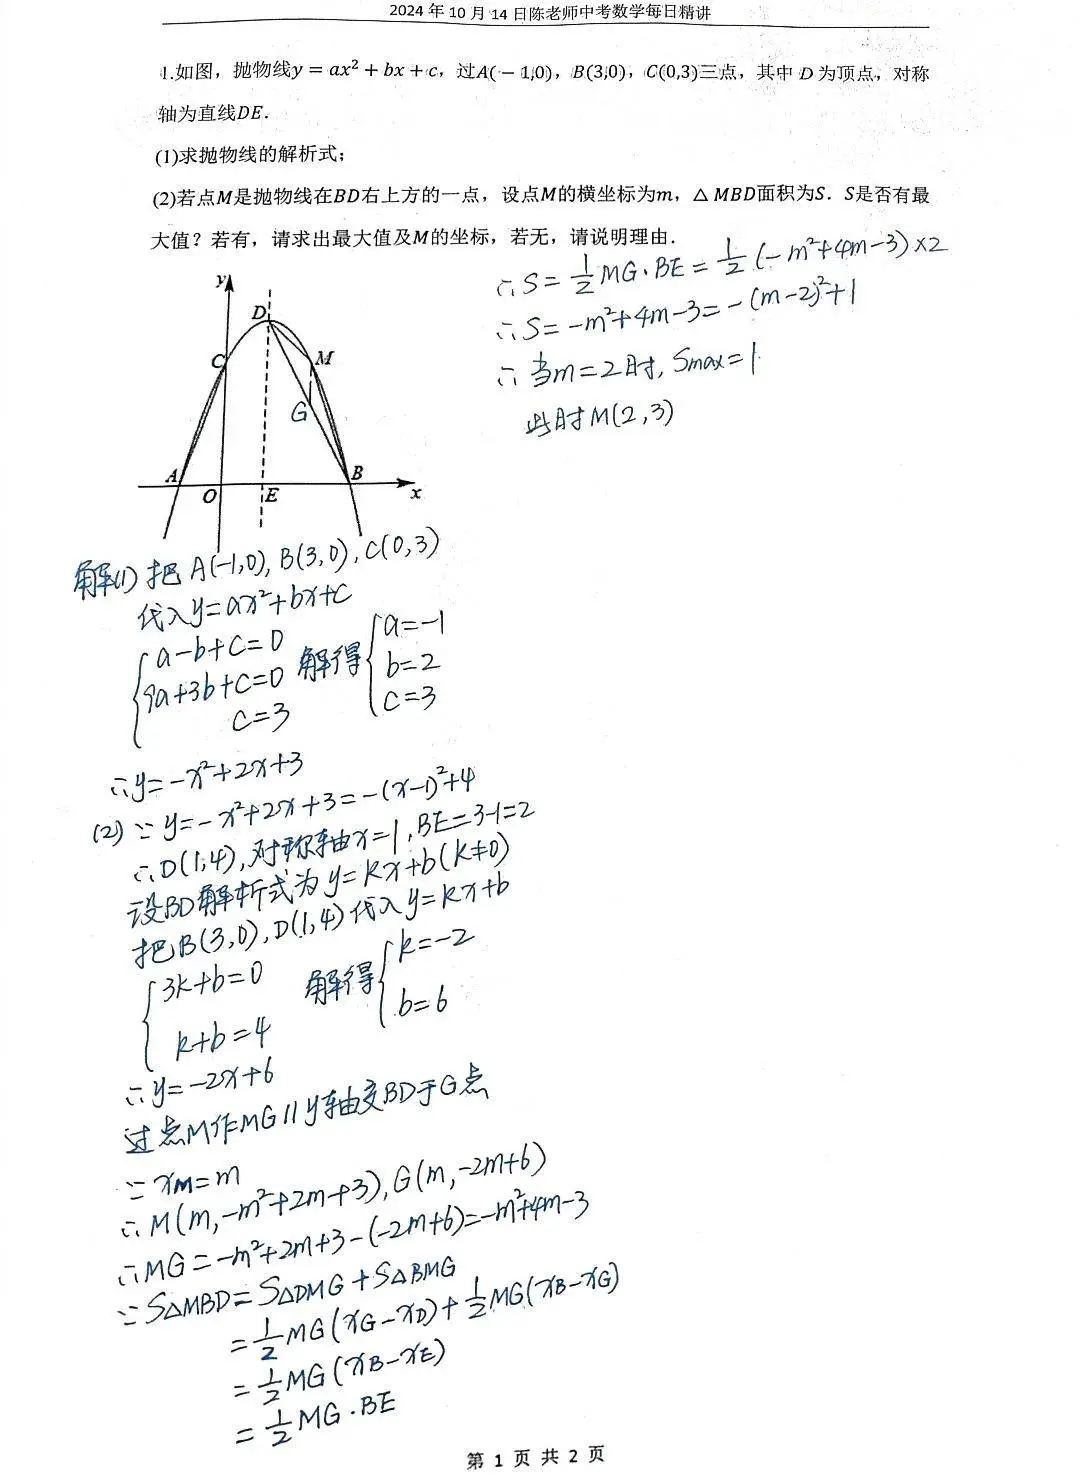 2024年10月14日陈老师中考数学每日精讲
1.如图，抛物线y = ax² + bx + c，过A(−1,0)，B(3,0)，C(0,3)三点，其中D为顶点，对称
轴为直线DE．
(1)求抛物线的解析式；
(2)若点M是抛物线在BD右上方的一点，设点M的横坐标为m，△MBD面积为S．S是否有最
大值？若有，请求出最大值及M的坐标，若无，请说明理由．
∴S=½MG·BE=½(-m²+4m-3)×2
∴S=-m²+4m-3=-(m-2)²+1
∴当m=2时，Smax=1
此时M(2,3)
y
D
C
M
G
A
B
O
E
x
解(1)把A(-1,0),B(3,0),C(0,3)
代入y=ax²+bx+c
{a-b+c=0
9a+3b+c=0
c=3
解得
{a=-1
b=2
c=3
∴y=-x²+2x+3
(2)∵y=-x²+2x+3=-(x-1)²+4
∴D(1,4),对称轴x=1,BE=3-1=2
设BD解析式为y=kx+b(k≠0)
把B(3,0),D(1,4)代入y=kx+b
{3k+b=0
k+b=4
解得
{k=-2
b=6
∴y=-2x+6
过点M作MG∥y轴交BD于G点
∵xM=m
∴M(m,-m²+2m+3),G(m,-2m+6)
∴MG=-m²+2m+3-(-2m+6)=-m²+4m-3
∵S△MBD=S△DMG+S△BMG
=½MG(xG-xD)+½MG(xB-xG)
=½MG(xB-xE)
=½MG·BE
第 1 页 共 2 页